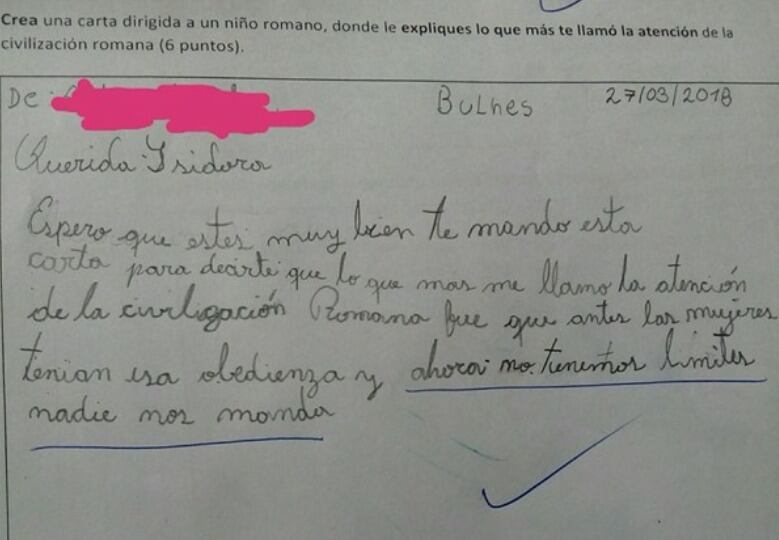 Crea una carta dirigida a un niño romano, donde le expliques lo que más te llamó la atención de la
civilización romana (6 puntos).
De
Bulnes
27/03/2018
Querida: Isidora
Espero que estes muy bien te mando esta
carta para decirte que lo que mas me llamo la atención
de la civiligación Romana fue que antes las mujeres
tenian esa obedienza y ahora no tenemos limites
nadie nos manda